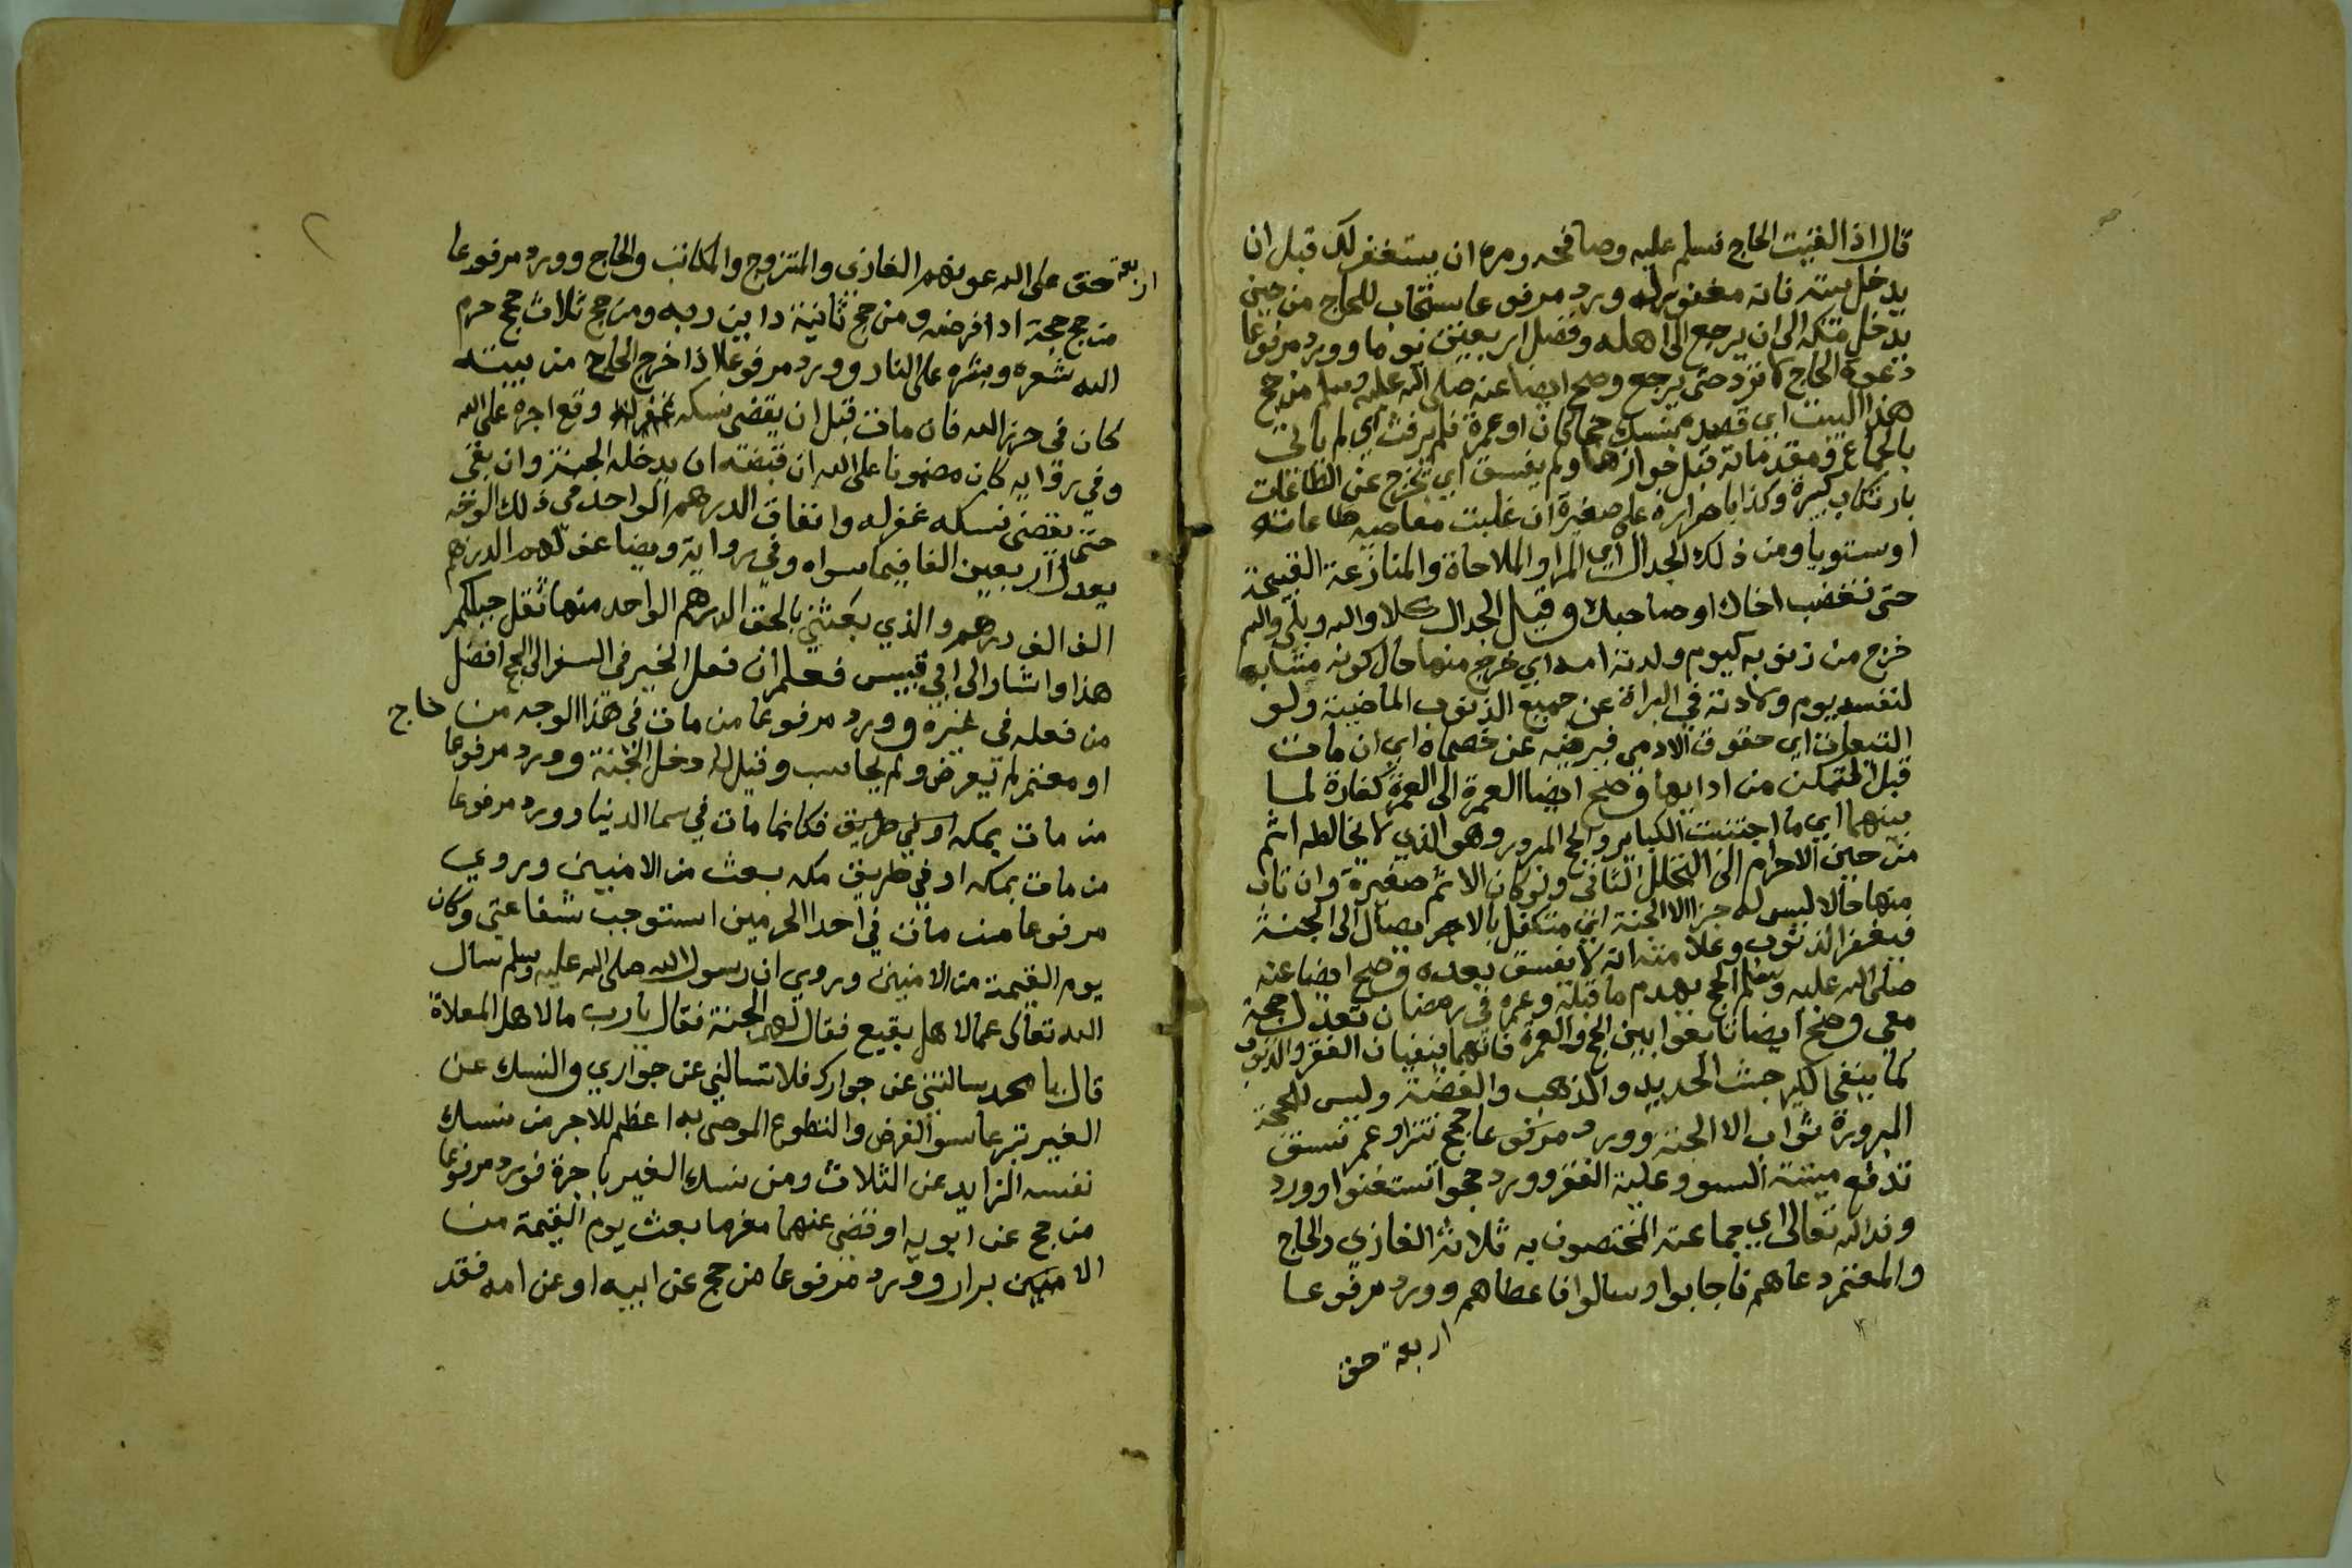 قال اذا لقيت الحاج فسلم عليه وصافحه ومره ان يستغفر لك قبل ان
يدخل بيته فانه مغفور له وورد مرفوعا يستجاب للحاج من حين
يدخل مكة الى ان يرجع الى اهله وفضل اربعين يوما وورد مرفوعا
دعوة الحاج لا ترد حتى يرجع وصح ايضا عنه صلى الله عليه وسلم من حج
هذا البيت اي قصده بنسك حجا كان او عمرة فلم يرفث اي لم يات
بالجماع ومقدماته قبل جوازها ولم يفسق اي يخرج عن الطاعات
بارتكاب كبيرة وكذا باصراره على صغيرة ان غلبت معاصيه طاعاته
او ستويا ومن ذلك الجدال اي المرا والملاحاة والمنازعة القبيحة
حتى تغضب اخاك او صاحبك وقيل الجدال كلا والله وبلى والله
خرج من ذنوبه كيوم ولدته امه اي خرج منها حال كونه مشابها
لنفسه يوم ولادته في البراة عن جميع الذنوب الماضية ولو
التبعات اي حقوق الادمي فيرضيه عن خصماه اي ان مات
قبل التمكن من ادايها وصح ايضا العمرة الى العمرة كفارة لما
بينهما اي ما اجتنبت الكباير والحج المبرور وهو الذي لا يخالطه اثم
من حين الاحرام الى التحلل الثاني ولو كان الاثم صغيرة وان تاب
منها حالا ليس له جزا الا الجنة اي متكفل بالاجر يصال الى الجنة
فيغفر الذنوب وعلامته انه لا يفسق بعده وصح ايضا عنه
صلى الله عليه وسلم الحج يهدم ما قبله وعمرة في رمضان تعدل حجة
معي وصح ايضا تابعوا بين الحج والعمرة فانهما ينفيان الفقر والذنوب
كما ينفي الكير خبث الحديد والذهب والفضة وليس للحجة
المبرورة ثواب الا الجنة وورد مرفوعا حجج تترا وعمر تنسق
تدفع ميتة السوء وعيلة الفقر وورد حجوا تستغنوا وورد
وفد الله تعالى اي جماعته المختصون به ثلاثة الغازي والحاج
والمعتمر دعاهم فاجابوا وسالوا فاعطاهم وورد مرفوعا
اربعة حق
اربعة حق على الله عونهم الغازي والمتزوج والمكاتب والحاج وورد مرفوعا
من حج حجة ادا فرضه ومن حج ثانية داين ربه ومن حج ثلاث حجج حرم
الله شعره وبشره على النار وورد مرفوعا اذا خرج الحاج من بيته
كان في حرز الله فان مات قبل ان يقضي نسكه وقع اجره على الله
وفي رواية كان مضمونا على الله ان قبضته ان يدخله الجنة وان بقي
حتى يقضي نسكه غفر له وانفاق الدرهم الواحد في ذلك الوجه
يعدل اربعين الفا فيما سواه وفي رواية ويضاعف لهم الدرهم
الف الف درهم والذي بعثني بالحق الدرهم الواحد منها اثقل جبلكم
هذا واشار الى ابي قبيس فعلم ان فعل الخير في السفر الى الحج افضل
من فعله في غيره وورد مرفوعا من مات في هذا الوجه من حاج
او معتمر لم يعرض ولم يحاسب وقيل له ادخل الجنة وورد مرفوعا
من مات بمكه او في طريق فكانما مات في سما الدنيا وورد مرفوعا
من مات بمكه او في طريق مكه بعث من الامنين وروي
مرفوعا من مات في احدا الحرمين استوجب شفاعتي وكان
يوم القيمة من الامنين وروي ان رسول الله صلى الله عليه وسلم سال
الله تعالى عما لاهل بقيع فقال لهم الجنة فقال يارب ما لاهل المعلاة
قال يا محمد سالتني عن جوارك فلا تسالني عن جواري والنسك عن
الغير تبرعا سوا الفرض والتطوع الموصى به اعظم للاجر من نسك
نفسه الزايد عن الثلاث ومن نسك الغير باجرة فورد مرفوعا
من حج عن ابويه او قضى عنهما مغرما بعث يوم القيمة من
الامنين برار وورد مرفوعا من حج عن ابيه او عن امه فقد